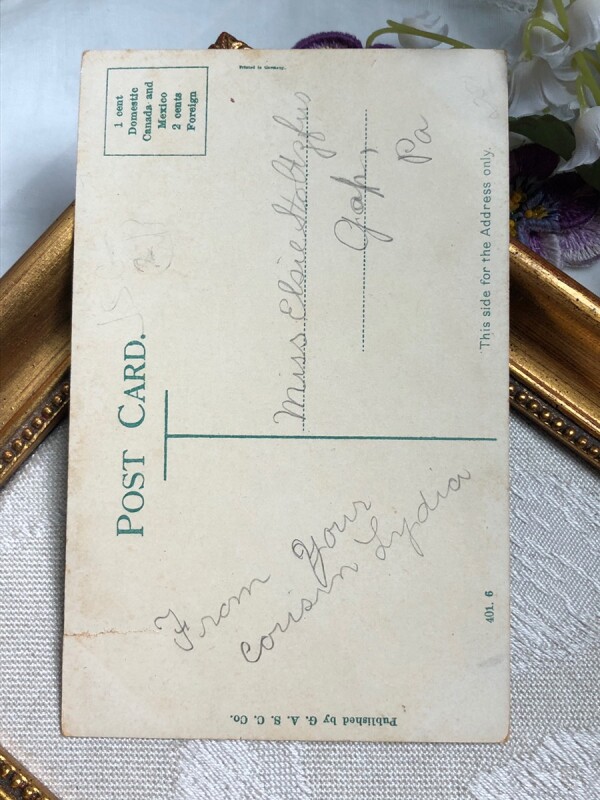 POST CARD.
1 cent
Domestic
Canada and
Mexico
2 cents
Foreign
Printed in Germany.
From Your
cousin Lydia
Miss Elsie Stoltzfus
Gap,
Pa
This side for the Address only.
401. 6
Published by G. A. S. C. Co.